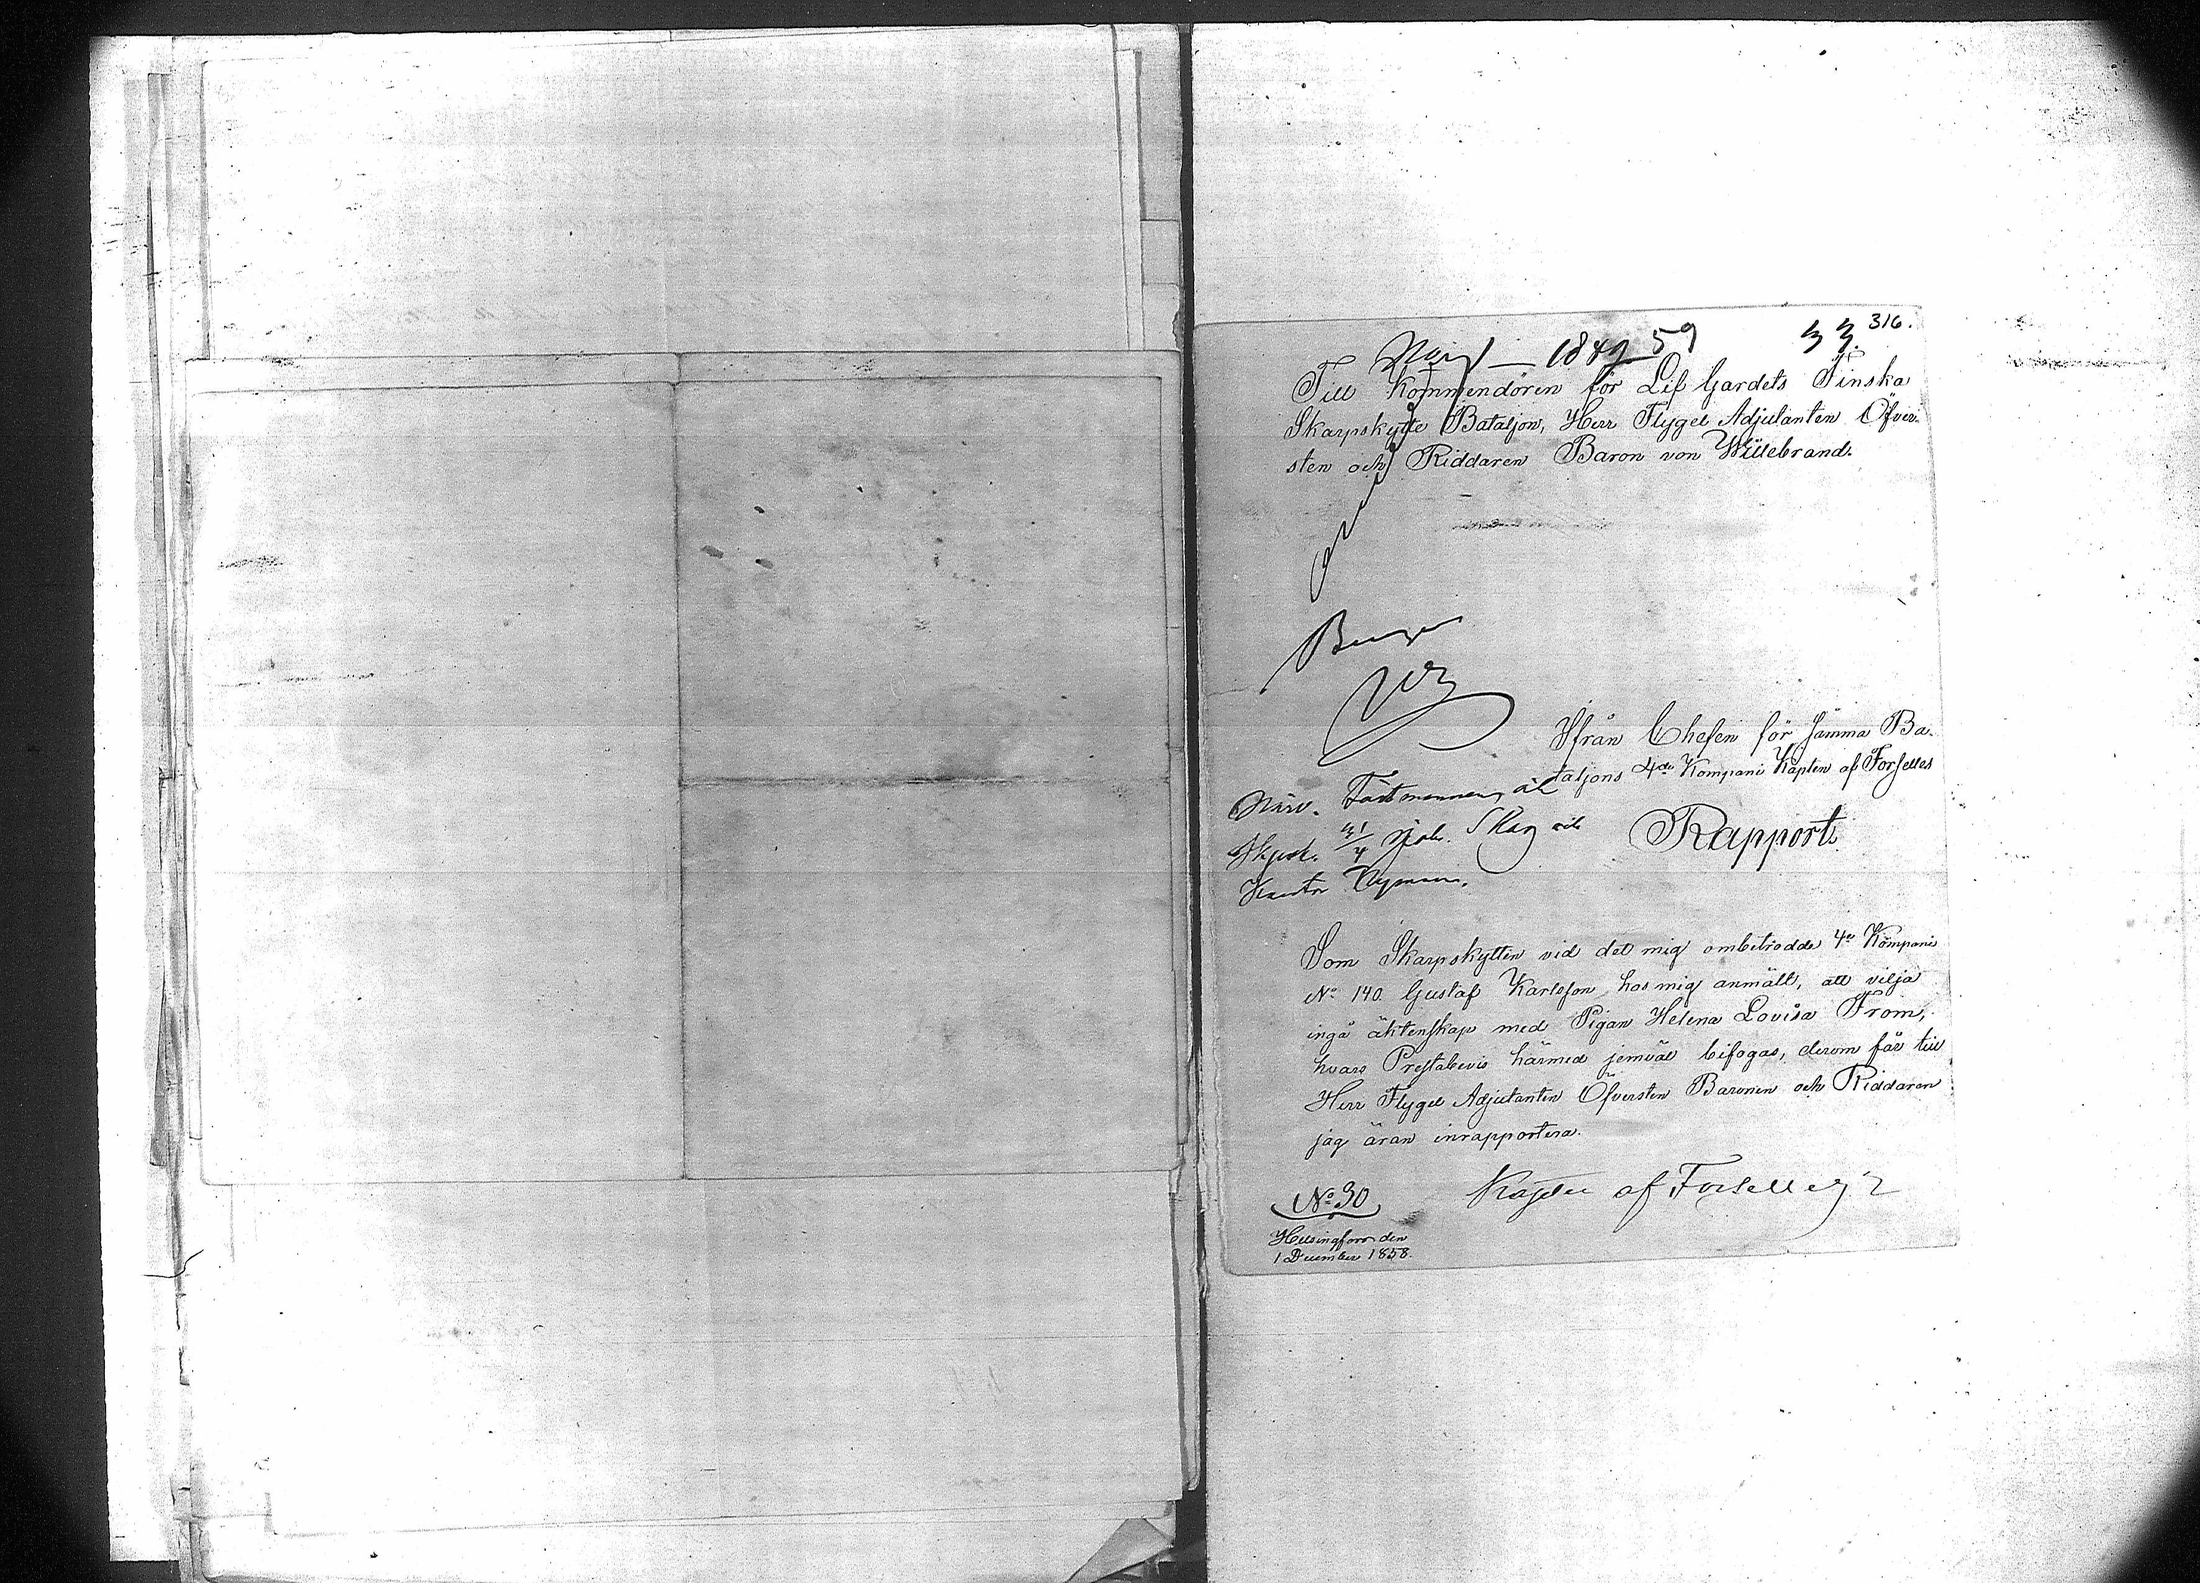 316.
33.
1842 59
Till Kommendören för Lif Gardets Finska
Skarpskytte Bataljon, Herr Flygel Adjutanten Öfver-
sten och Riddaren Baron von Willebrand.
Ifrån Chefen för samma Ba-
taljons 4de Kompani Kapten af Forselles
Rapport.
Närv.
Som Skarpskytten vid det mig ombetrodde 4e Kompani
No 140 Gustaf Karlsson hos mig anmält, att vilja
ingå äktenskap med Pigan Helena Lovisa From,
hvars Prestabevis härmed jemväl bifogas, derom får till
Herr Flygel Adjutanten Öfversten Baronen och Riddaren
jag äran inrapportera.
No 30
Kapten af Forselles
Helsingfors den
1 December 1858.